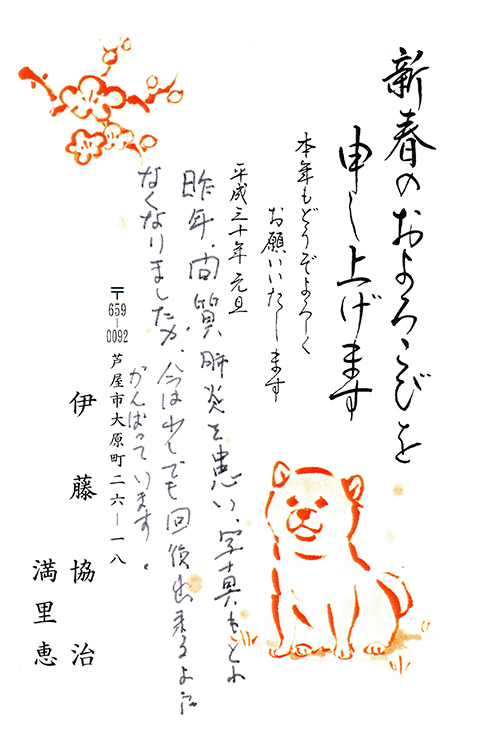 新春のおよろこびを
申し上げます
本年もどうぞよろしく
お願いいたします
平成三十年 元旦
昨年、间質肺炎を患い、写真もとれ
なくなりましたが、今は少しでも回復出来るよう
がんばっています。
〒659-0092
芦屋市大原町二六-一八
伊藤 協治
満里恵